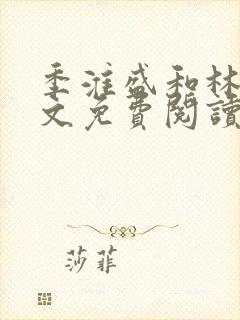 季淮盛和林
文免費閱讀
莎菲